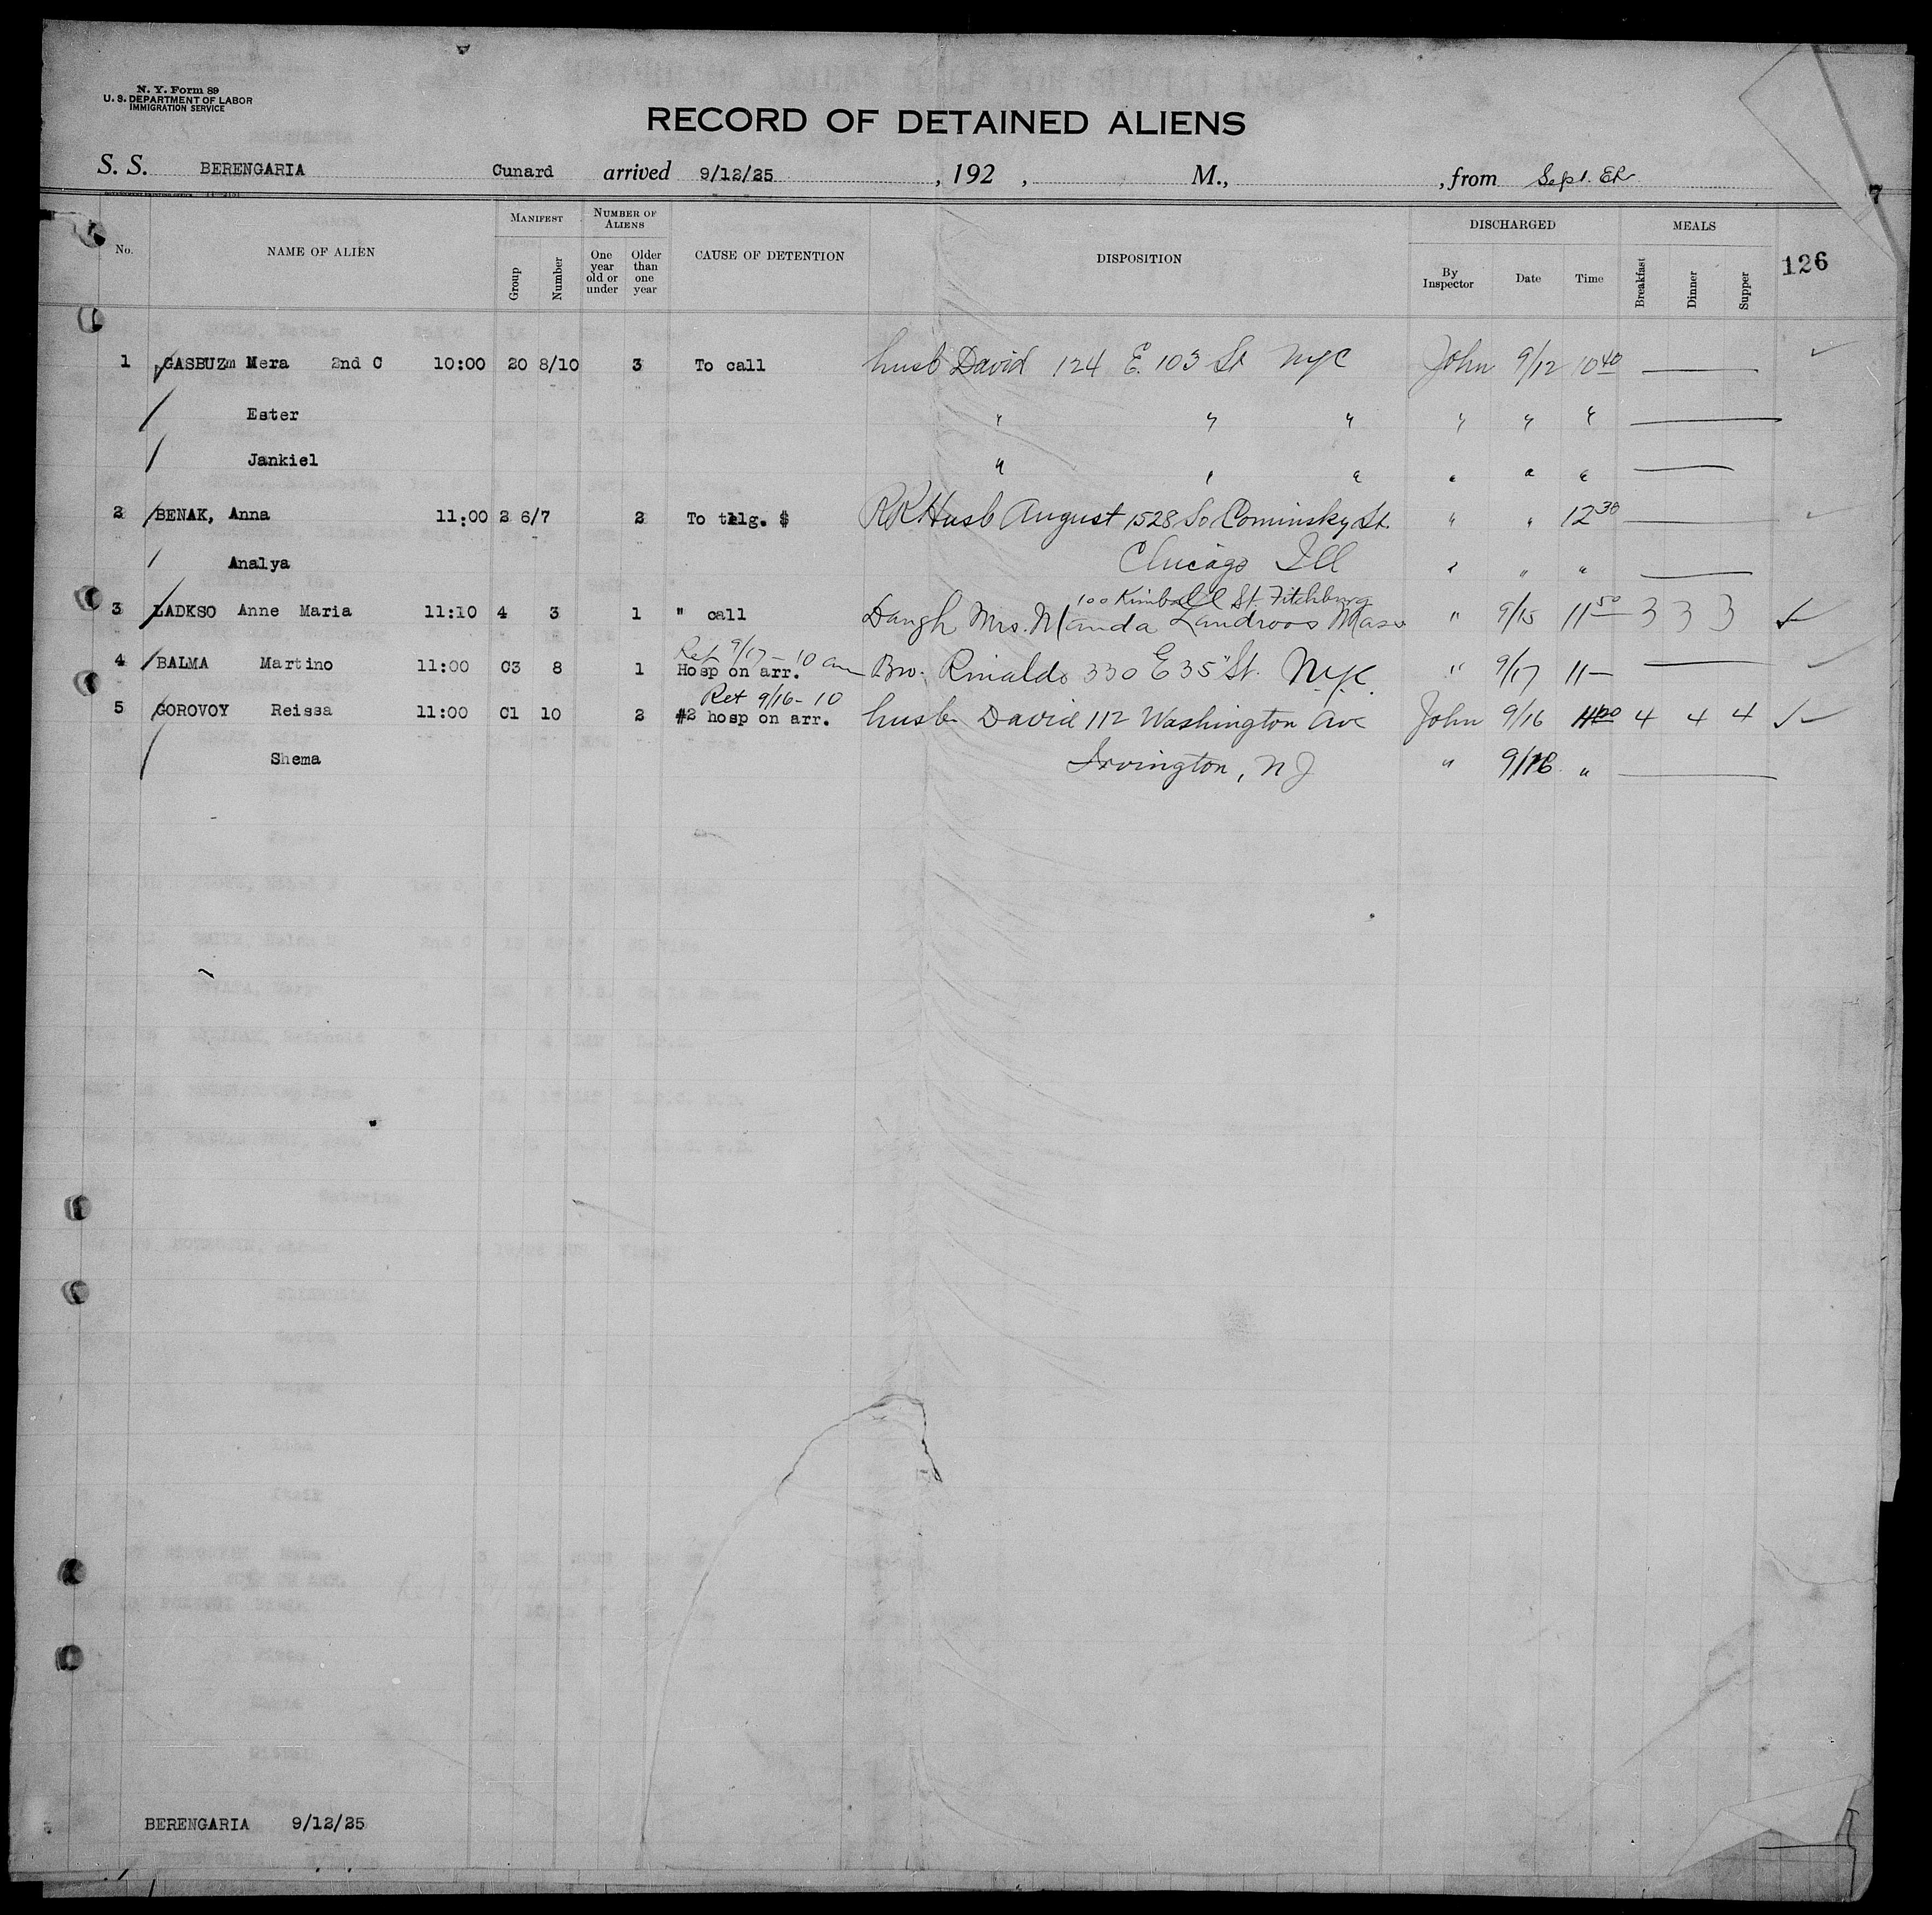 N. Y. Form 89
U. S. DEPARTMENT OF LABOR
IMMIGRATION SERVICE
RECORD OF DETAINED ALIENS
S. S. BERENGARIA Cunard arrived 9/12/25 , 192 , M., , from
7
No. NAME OF ALIEN MANIFEST Group Number NUMBER OF ALIENS One year old or under Older than one year CAUSE OF DETENTION DISPOSITION DISCHARGED By Inspector Date Time MEALS Breakfast Dinner Supper 126
1 GASBUZm Mera 2nd C 10:00 20 8/10 3 To call husb David 124 E. 103 St NYC John 9/12 10 40
Ester " " " " " "
Jankiel " " " " " "
2 BENAK, Anna 11:00 2 6/7 2 To telg. $ RR Husb August 1528 So Cominsky St. " " 12 30
Analya Chicago Ill " " "
100 Kimball St. Fitchburg
3 LADKSO Anne Maria 11:10 4 3 1 " call Daugh Mrs. Manda Landroos Mass " 9/15 11 50 3 3 3
Ret 9/17 - 10 am
4 BALMA Martino 11:00 C3 8 1 Hosp on arr. Bro. Rinaldo 330 E 35" St. N.Y.C. " 9/17 11-
Ret 9/16 - 10
5 GOROVOY Reissa 11:00 C1 10 2 #2 hosp on arr. husb David 112 Washington Ave John 9/16 1100 4 4 4
Shema Irvington, NJ " 9/16 "
BERENGARIA 9/12/25